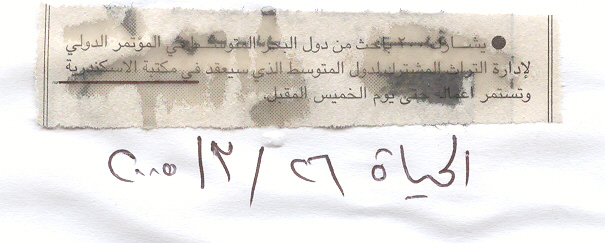 ● يشارك ٢٠٠ باحث من دول البحر المتوسط في المؤتمر الدولي
لإدارة التراث المشترك لدول المتوسط الذي سيعقد في مكتبة الاسكندرية
وتستمر أعماله حتى يوم الخميس المقبل.
الحياة ٢٦ / ٣ / ٢٠٠٥